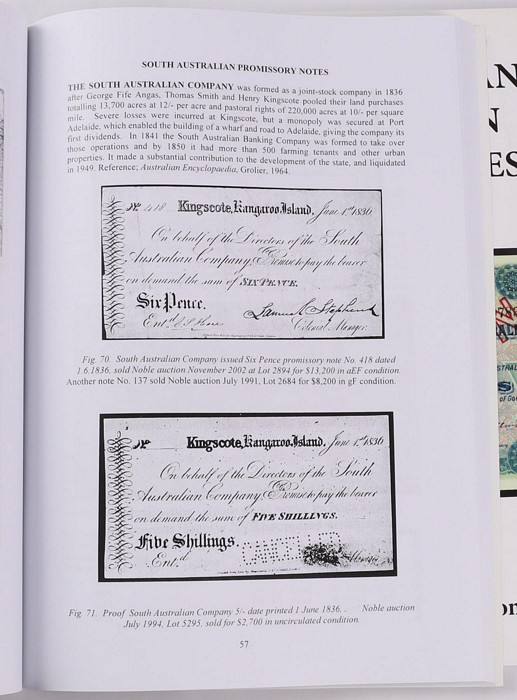 SOUTH AUSTRALIAN PROMISSORY NOTES
THE SOUTH AUSTRALIAN COMPANY was formed as a joint-stock company in 1836
after George Fife Angas, Thomas Smith and Henry Kingscote pooled their land purchases
totalling 13,700 acres at 12/- per acre and pastoral rights of 220,000 acres at 10/- per square
mile. Severe losses were incurred at Kingscote, but a monopoly was secured at Port
Adelaide, which enabled the building of a wharf and road to Adelaide, giving the company its
first dividends. In 1841 the South Australian Banking Company was formed to take over
those operations and by 1850 it had more than 500 farming tenants and other urban
properties. It made a substantial contribution to the development of the state, and liquidated
in 1949. Reference; Australian Encyclopaedia, Grolier, 1964.
No. 418 Kingscote, Kangaroo Island, June 1st 1836
On behalf of the Directors of the South
Australian Company, I Promise to pay the bearer
on demand the sum of SIX PENCE.
Six Pence.
Samuel Stephens
Entd
Colonial Manager
Fig. 70. South Australian Company issued Six Pence promissory note No. 418 dated
1.6.1836, sold Noble auction November 2002 at Lot 2894 for $13,200 in aEF condition.
Another note No. 137 sold Noble auction July 1991, Lot 2684 for $8,200 in gF condition.
No Kingscote, Kangaroo Island, June 1st 1836
On behalf of the Directors of the South
Australian Company, I Promise to pay the bearer
on demand the sum of FIVE SHILLINGS.
Five Shillings.
CANCELLED
Entd
Manager
Fig. 71. Proof South Australian Company 5/- date printed 1 June 1836. . Noble auction
July 1994, Lot 5295, sold for $2,700 in uncirculated condition.
57